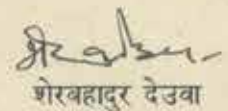 शेरबहादुर देउवा